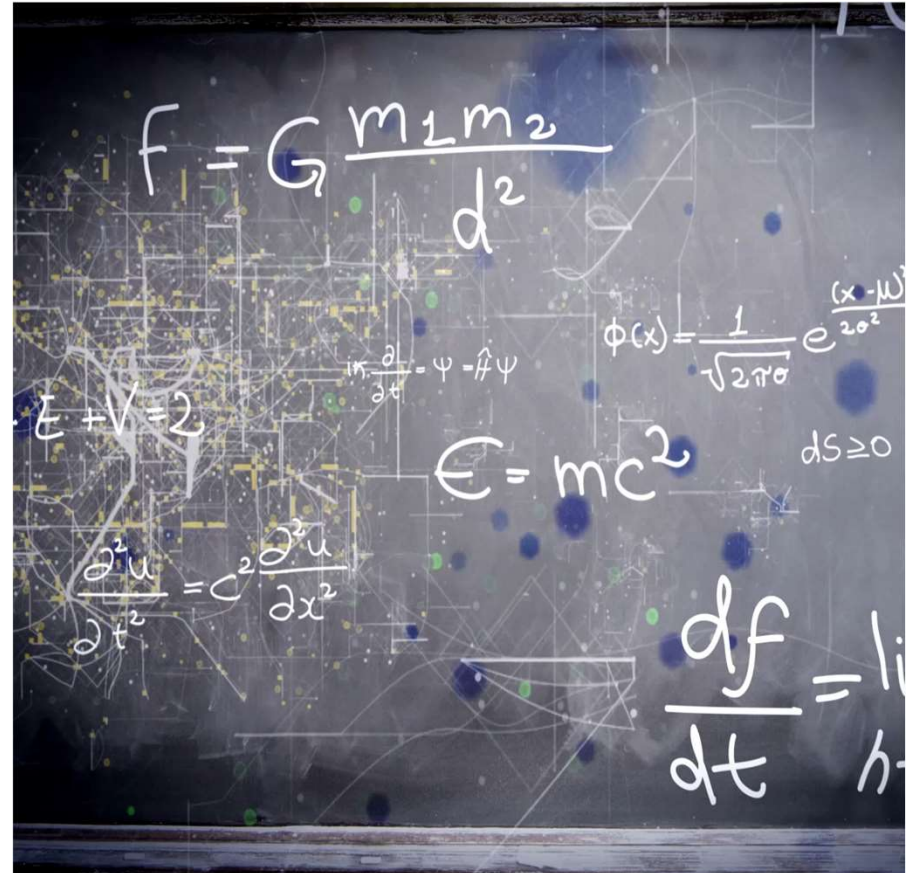 F = G m1m2 / d²
φ(x) = 1 / √2πσ e (x-μ)² / 2σ²
iħ ∂ / ∂t = Ψ = Ĥ Ψ
E + V = 2
E = mc²
dS ≥ 0
∂²u / ∂t² = c² ∂²u / ∂x²
df / dt = li
h